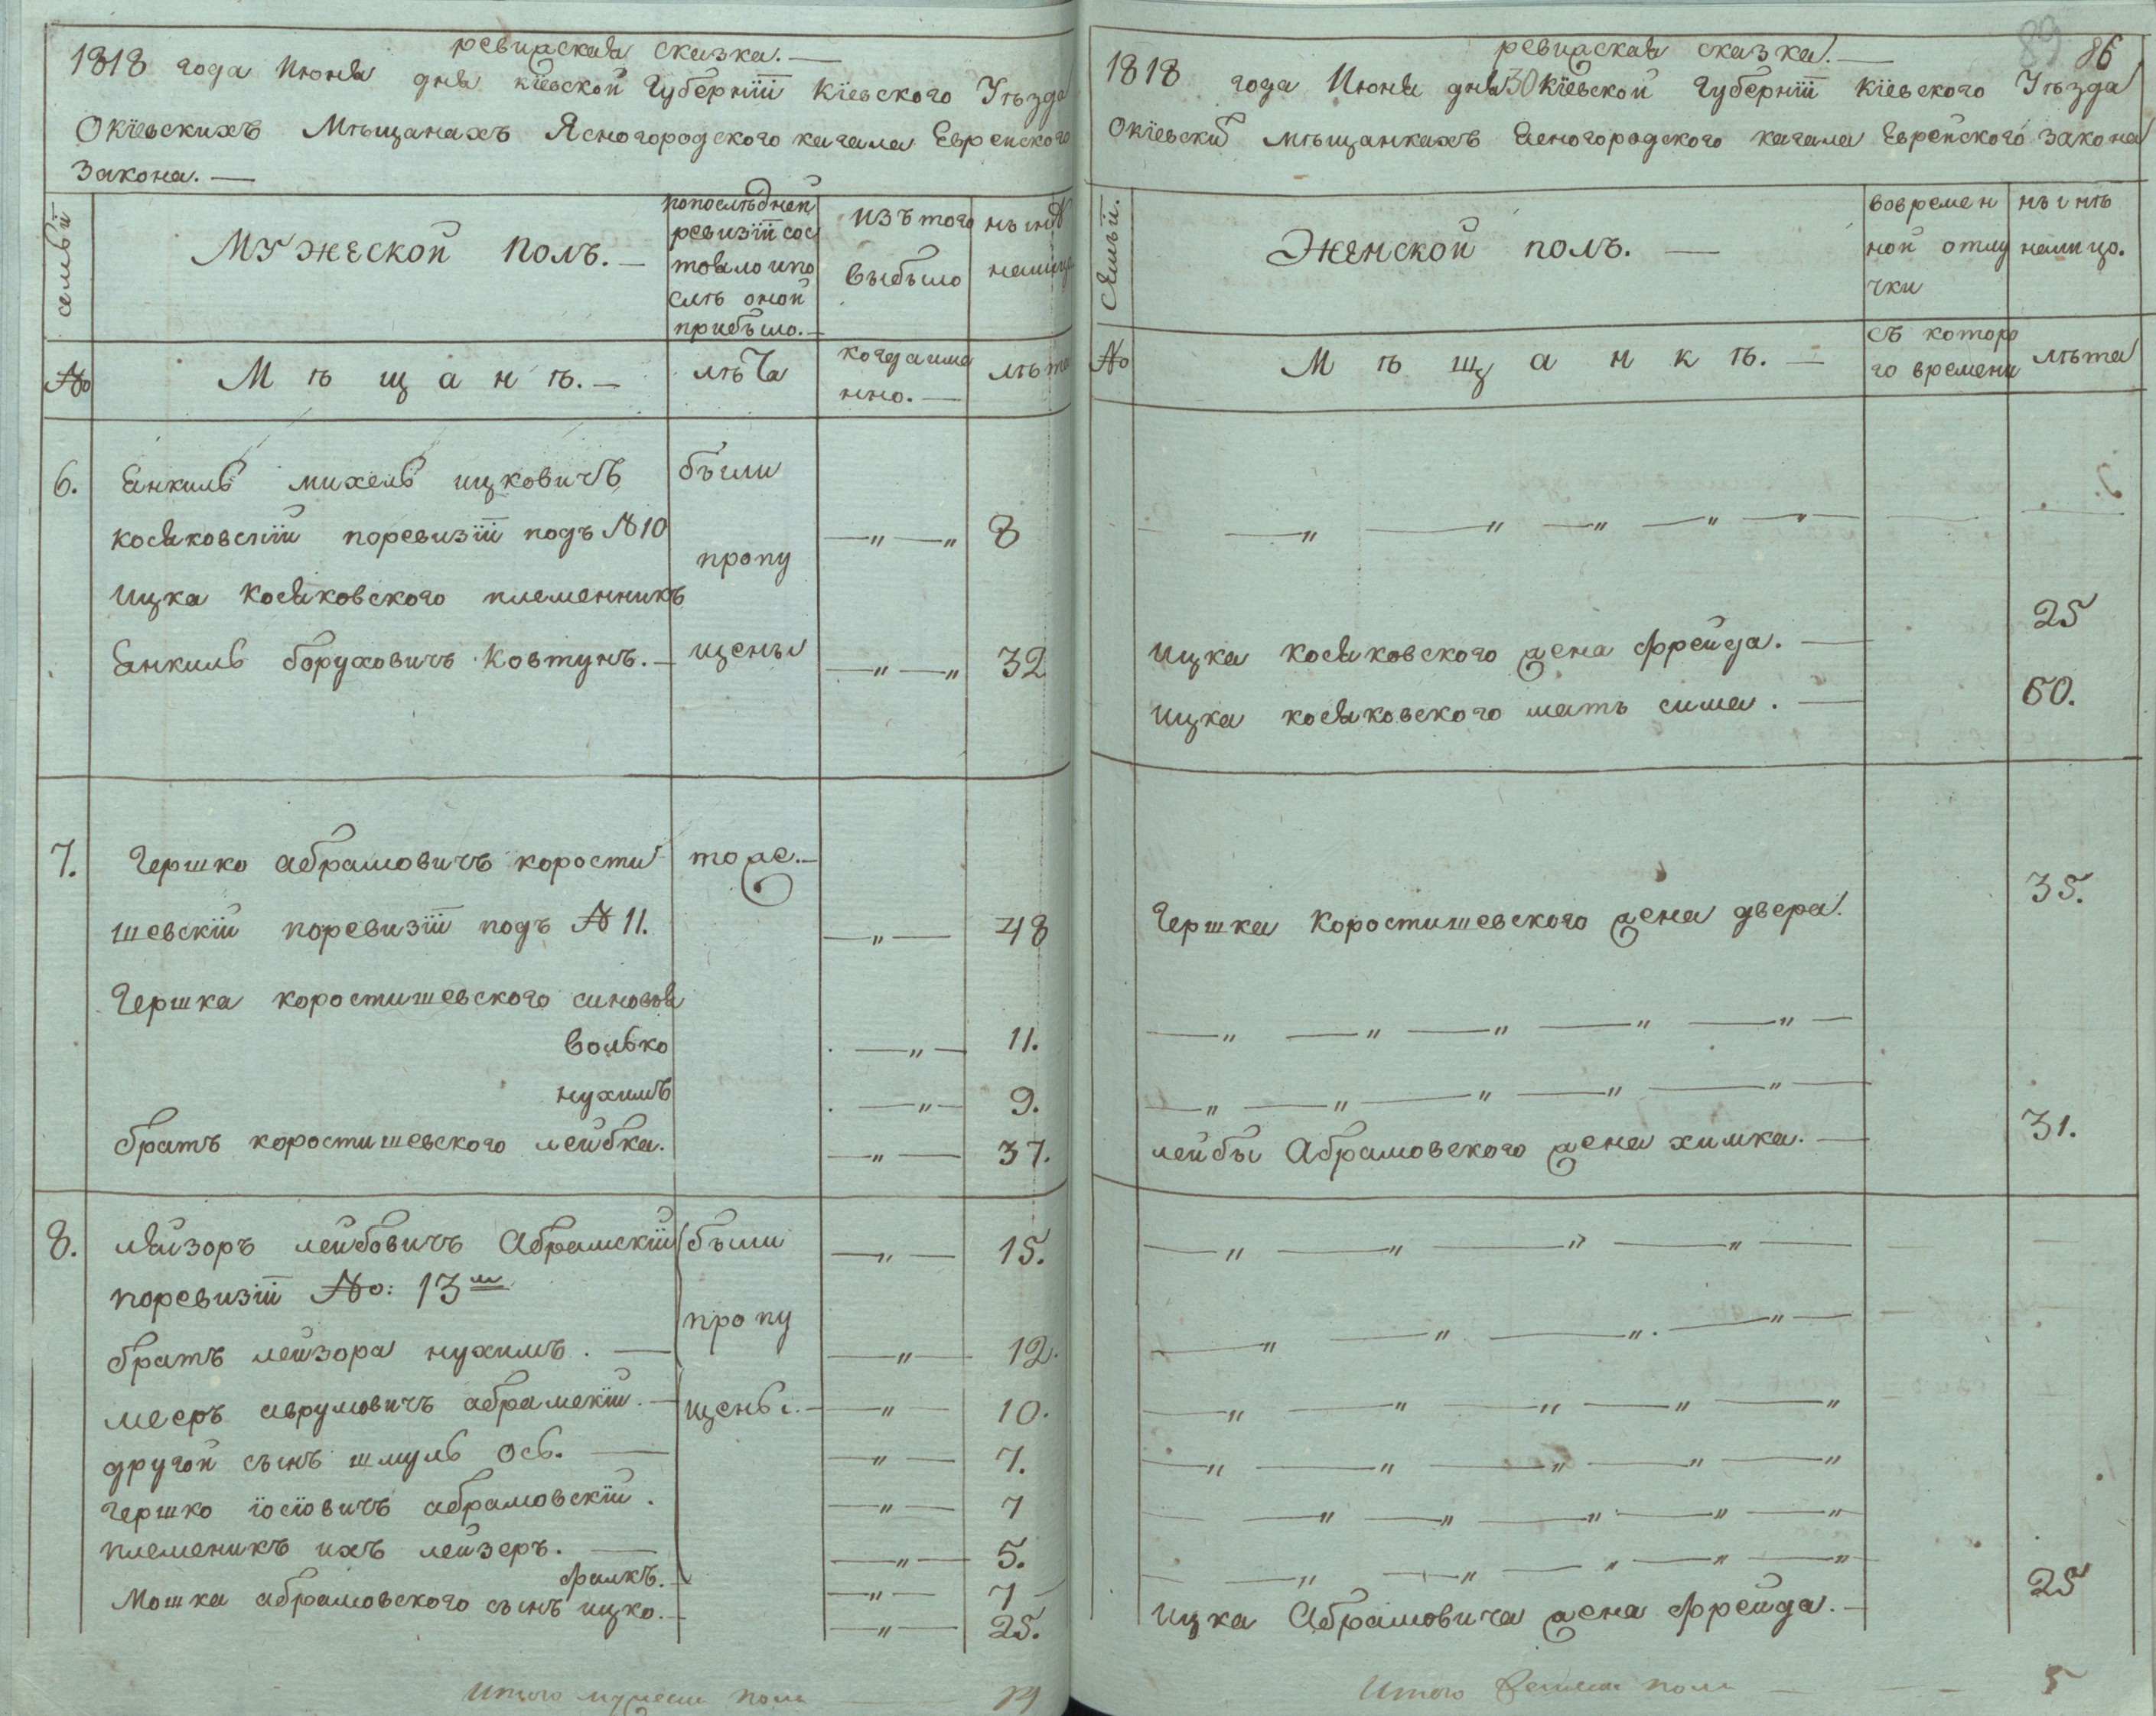 ревизская сказка. —
1818 года Июня дня кіевской Губерніи Кіевского Уѣзда
Окіевскихъ Мѣщанахъ Ясногородского кагала Еврейского
Закона. —
семьи
Мужеской полъ. —
попослѣдней
ревизіи сос
тояло и по
слѣ оной
прибыло. —
изъ того
выбыло
нынѣ
налицо
№
Мѣщанѣ. —
лѣта
когда име
нно. —
лѣта
6. Янкиль михель ицковичъ были
косяковскій поревизіи подъ №10 —„—„ 8
пропу
Ицка косяковского племенникъ
Янкиль боруховичъ Ковтунъ. — щены —„—„ 32
7. Гершко абрамовичъ корости тоже. —
шевскій поревизіи подъ № 11. —„— 48
Гершка коростишевского синовя
волько —„— 11.
нухимъ —„— 9.
братъ коростишевского лейбка. —„— 37.
8. Лейзоръ лейбовичъ Абрамскій были —„— 15.
поревизіи №: 13м
пропу
братъ лейзора нухимъ. — —„— 12.
мееръ аврумовичъ абрамскій. — щены. — —„— 10.
другой сынъ шмуль ось. — —„— 7.
гершко іосіовичъ абрамовскій. —„— 7
племеникъ ихъ лейзеръ. — —„— 5.
фалкъ. — —„— 7
Мошка абрамовского сынъ ицко. — —„— 25.
Итого мужеска пола 14
86
ревизская сказка. —
1818 года Июня дня 30 Кіевской Губерніи Кіевского Уѣзда
Окіевски мѣщанкахъ Ясногородского кагала Еврейского закона
семьи.
Женской полъ. —
вовремен
ной отлу
чки
нынѣ
налицо.
№
Мѣщанкѣ. —
съ которо
го времени
лѣта
Ицка косяковского жена фрейда. — 25
Ицка косяковского мать сима. — 60.
Гершка Коростишевского жена двера. 35.
лейбы Абрамовского жена химка. — 31.
Ицка Абрамовича жена фрейда. — 25
Итого женска пола — 5